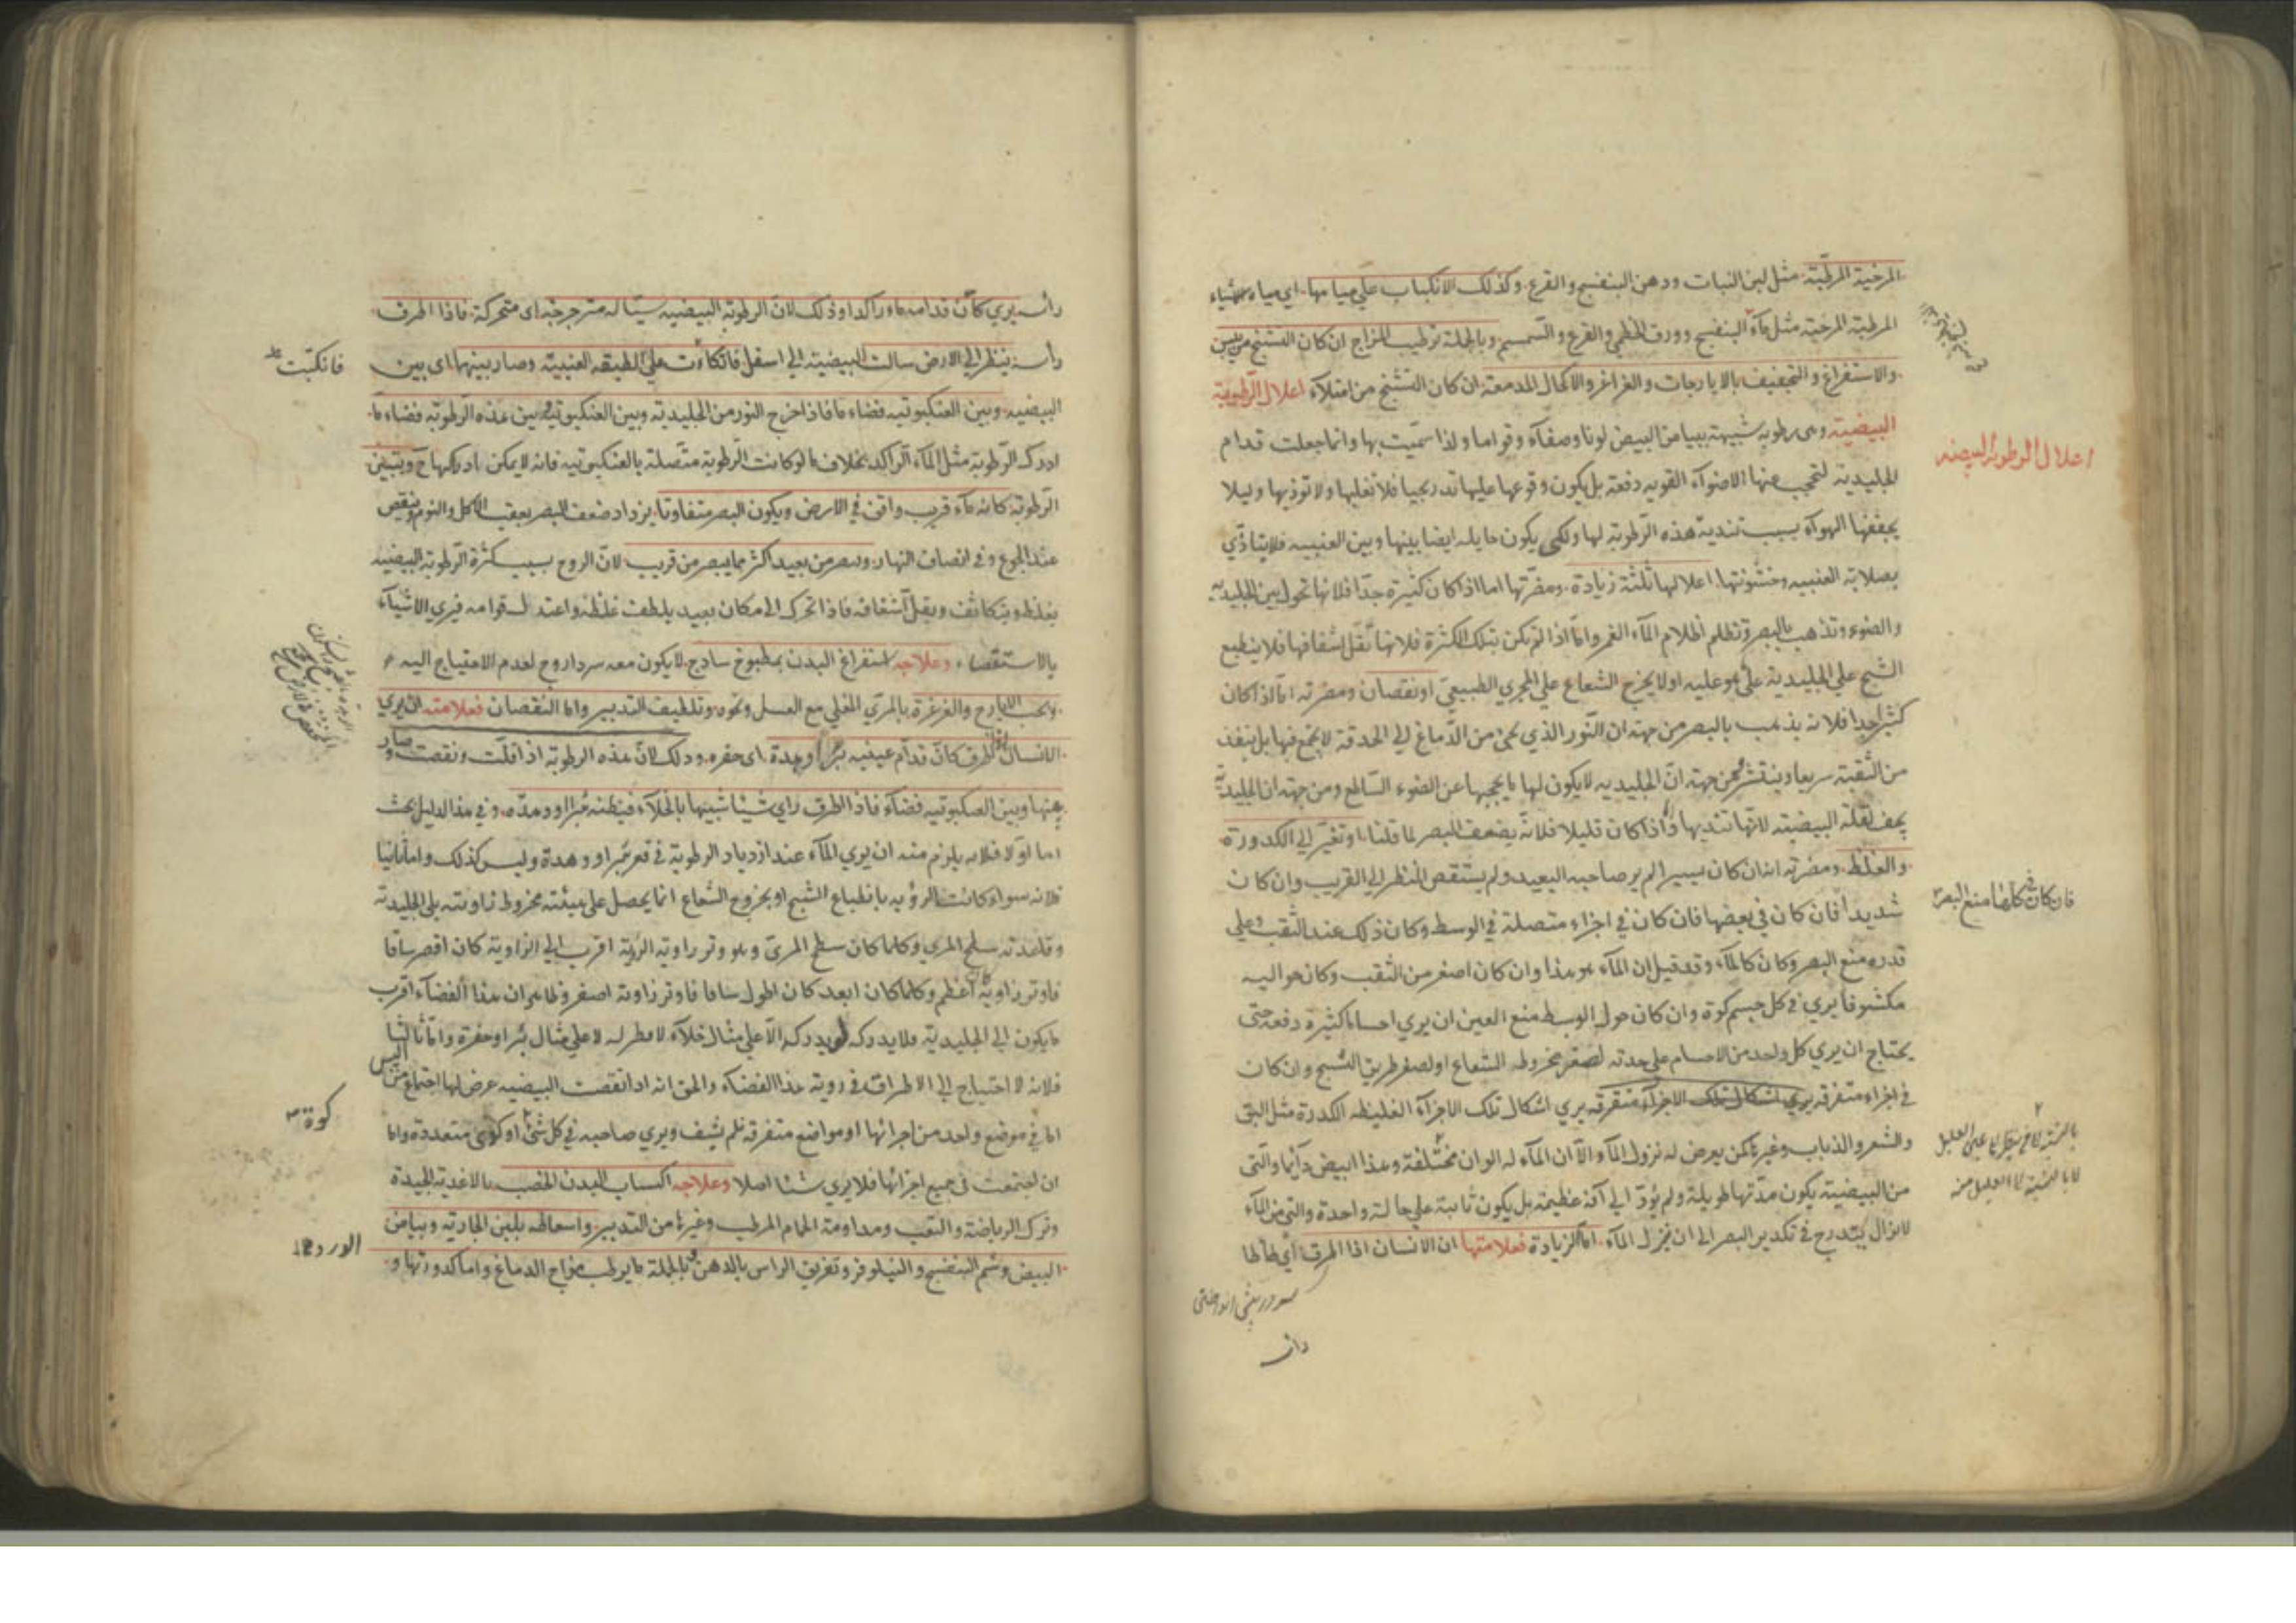 المرخية المرطبة مثل لبن النبات ودهن البنفسج والقرع وكذلك الانكباب على مياهها اي مياه الاشياء
المرطبة المرخية مثل ماء البنفسج وورق الخطمي والقرع والسمسم وبالجملة ترطيب المزاج ان كان التشنج من يبس
والاستفراغ والتجفيف بالايارجات والغراغر والاكحال المدمعة ان كان التشنج من امتلاء اعلال الرطوبة
البيضية وهى رطوبة شبيهة ببياض البيض لونا وصفاء وقواما ولذا سميت بها وانما جعلت قدام
الجليدية لتحجب عنها الاضواء القوية دفعة بل يكون وقوعها عليها تدريجيا فلا تغلبها ولا توذيها وليلا
يجففها الهواء بسبب تندية هذه الرطوبة لها ولكى يكون حايلة ايضا بينها وبين العنبيه فلا يتاذي
بصلابة العنبيه وخشونتها اعلالها ثلثة زيادة ومضرتها اما اذا كان كثيرة جدا فلانها تحول بين الجليدية
والضوء وتذهب بالبصر وتظلم اظلام الماء الغمر واما اذا لم تكن بتلك الكثرة فلانها تقل اشفافها فلا ينطبع
الشبح علي الجليدية على ما هو عليه او لا يخرج الشعاع علي المجري الطبيعي او نقصان ومضرته اما اذا كان
كثيرا جدا فلانه يذهب بالبصر من جهة ان النور الذي يجئ من الدماغ الي الحدقة لا يجتمع فيها بل ينفذ
من الثقبة سريعا وينتشر ومن جهة ان الجليديه لا يكون لها ما يحجبها عن الضوء الساطع ومن جهة ان الجليدية
يجف لقلة البيضية لانها تنديها واما اذا كان قليلا فلانه يضعف البصر لما قلنا او تغير الي الكدورة
والغلظ ومضرته انه ان كان يسيرا لم ير صاحبه البعيد ولم يستقص النظر الي القريب وان كان
شديدا فان كان في بعضها فان كان في اجزاء متصلة في الوسط وكان ذلك عند الثقب وعلي
قدره منع البصر وكان كالماء وقد قيل ان الماء هو هذا وان كان اصغر من الثقب وكان حواليه
مكشوفا يري في كل جسم كوة وان كان حول الوسط منع العين ان يري اجساما كثيرة دفعة حتى
يحتاج ان يري كل واحد من الاجسام علي حدته لصغر مخروط الشعاع او لصغر طريق الشبح وان كان
في اجزاء متفرقة يري اشكال تلك الاجزاء متفرقة يري اشكال تلك الاجزاء الغليظه الكدرة مثل البق
والشعر والذباب وغيرها كمن يعرض له نزول الماء الا ان الماء له الوان مختلفة وهذا ابيض دائما والتى
من البيضية يكون مدتها طويلة ولم يؤد الي آفة عظيمة بل يكون ثابتة علي حالة واحدة والتى من الماء
لا يزال يتدرج في تكدير البصر الي ان ينزل الماء اما الزيادة فعلامتها ان الانسان اذا اطرق اي طاطا
اعلال الرطوبة البيضيه
فان كان في كلها منع البصر
رأسه يري كأن قدامه ماء راكدا وذلك لان الرطوبة البيضيه سيالة مترجرجة اي متحركة فاذا اطرق
رأسه ينظر الي الارض سالت البيضية الي اسفل فاتكاءت علي الطبقه العنبية وصار بينها اي بين
البيضيه وبين العنكبوتيه فضاء ما فاذا خرج النور من الجليدية وبين العنكبوتية وبين هذه الرطوبة فضاء ما
ادرك الرطوبة مثل الماء الراكد بخلاف ما لو كانت الرطوبة متصلة بالعنكبوتيه فانه لا يمكن ادراكها ح ويتبين
الرطوبة كانه ماء قريب واقف في الارض ويكون البصر متفاوتا يزداد ضعف البصر بعقب الاكل والنوم وينقص
عند الجوع وفي انصاف النهار ويبصر من بعيد اكثر مما يبصر من قريب لان الروح بسبب كثرة الرطوبة البيضيه
يغلظ ويتكاثف ويقل اشفافه فاذا تحرك الي مكان بعيد يلطف غلظه واعتدل قوامه فيري الاشياء
بالاستقصاء وعلاجه استفراغ البدن بمطبوخ ساذج لا يكون معه سردارج لعدم الاحتياج اليه
وبحب الايارج والغرغرة بالمري المغلي مع العسل ونحوه وتلطيف التدبير واما النقصان فعلامته ان يري
الانسان اذا اطرق كان قدام عينيه بئرا او وهدة اي حفرة وذلك لان هذه الرطوبة اذا قلت ونقصت وصار
بينها وبين العنكبوتيه فضاء فاذا اطرق راي شيئا شبيها بالخلاء فيظنه بئرا او وهدة وفي هذا الدليل بحث
اما اولا فلانه يلزم منه ان يري الماء عند ازدياد الرطوبة في قعر بئر او وهدة وليس كذلك واما ثانيا
فلانه سواء كانت الرؤية بانطباع الشبح او بخروج الشعاع انما يحصل علي هيئة مخروط زاويته يلي الجليدية
وقاعدته سطح المري وكلما كان سطح المرئ وهو وتر زاوية الرؤية اقرب الي الزاوية كان اقصر ساقا
فاوتر زاوية اعظم وكلما كان ابعد كان اطول ساقا فاوتر زاوية اصغر وظاهر ان هذا الفضاء اقرب
ما يكون الي الجليدية فلا يدركه لو يدركه الا علي مثال خلاء لا قطر له لا علي مثال بئر او حفرة واما ثالثا
فلانه لا احتياج الي الاطراق في روية هذا الفضاء والحق انه اذا نقصت البيضيه عرض لها اجتماع من اليبس
اما في موضع واحد من اجزائها او مواضع متفرقة فلم يشف ويري صاحبه في كل شئ او كوى متعددة واما
ان اجتمعت في جميع اجزائها فلا يري شيئا اصلا وعلاجه اكساب البدن الخصب بالاغذية الجيدة
وترك الرياضة والتعب ومداومة الحمام المرطب وغيرها من التدبير واسعاطه بلبن الجارية وبياض
البيض وشم البنفسج والنيلوفر وتغريق الراس بالدهن وبالجملة ما يرطب مزاج الدماغ واما كدورتها و
فانكبت
كوة